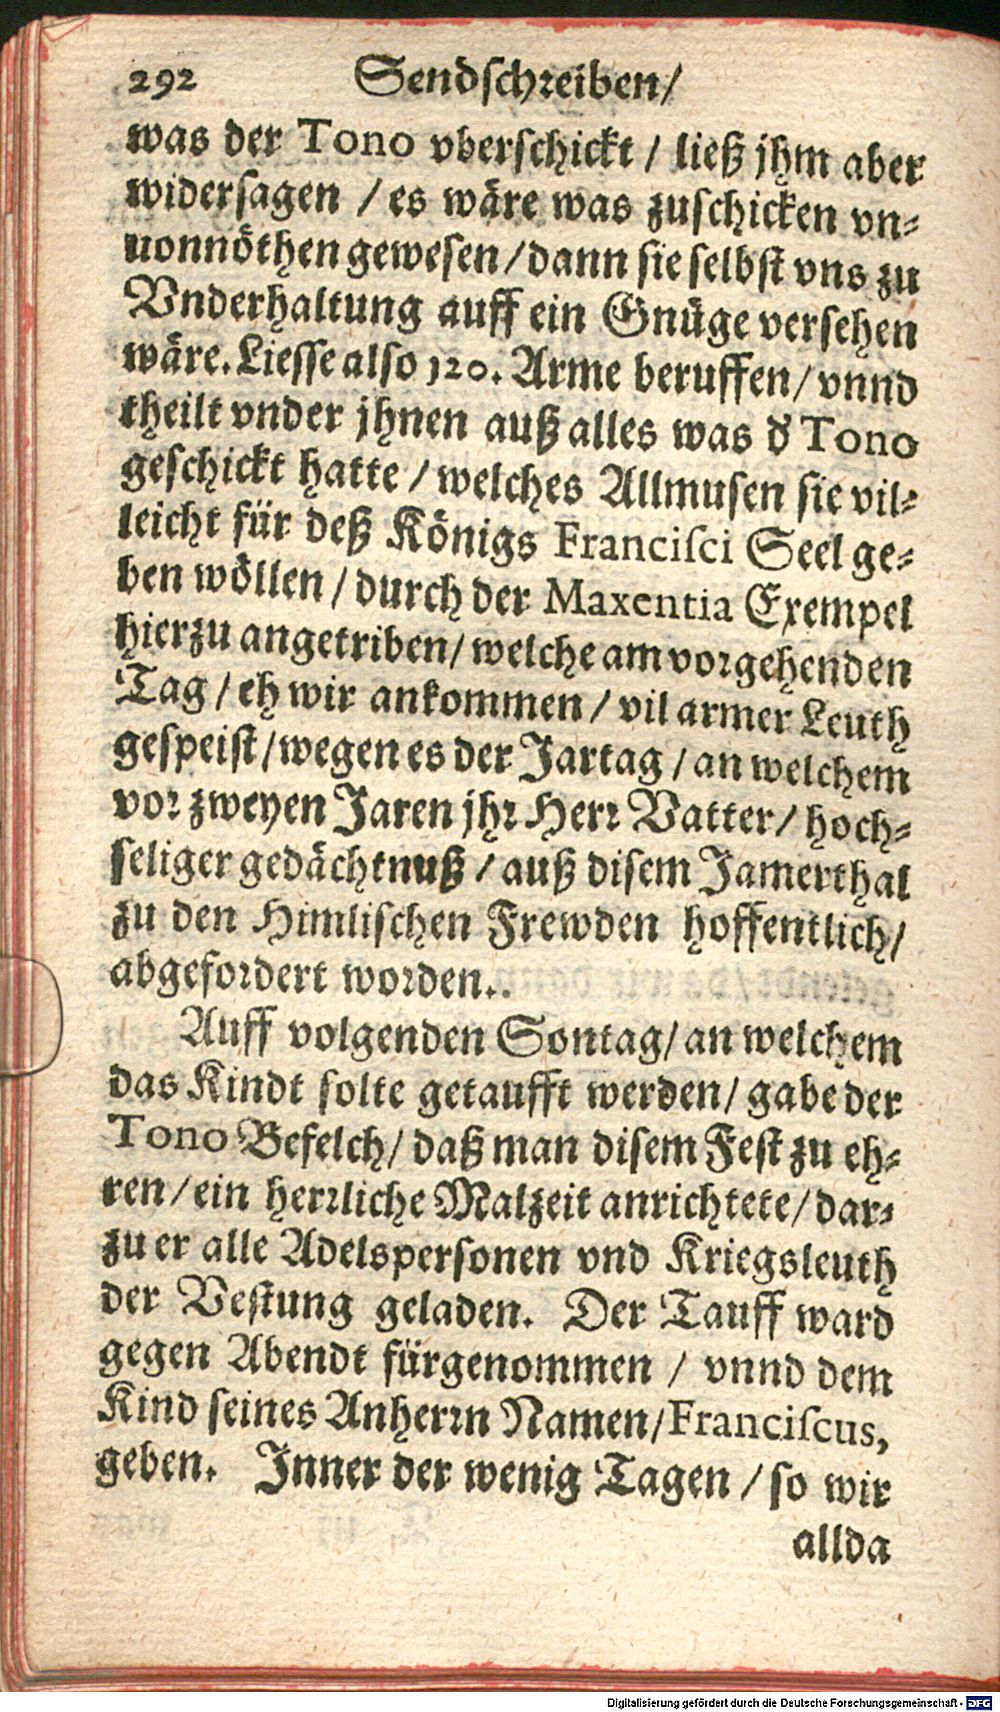 292 Sendschreiben/
was der Tono vberschickt / ließ jhm aber
widersagen / es wäre was zuschicken vn⸗
uonnöthen gewesen / dann sie selbst vns zu
Vnderhaltung auff ein Gnüge versehen
wäre. Liesse also 120. Arme beruffen/ vnnd
theilt vnder jhnen auß alles was d' Tono
geschickt hatte / welches Allmusen sie vil⸗
leicht für deß Königs Francisci Seel ge⸗
ben wöllen / durch der Maxentia Exempel
hierzu angetriben/ welche am vorgehenden
Tag / eh wir ankommen / vil armer Leuth
gespeist / wegen es der Jartag / an welchem
vor zweyen Jaren jhr Herr Vatter/ hoch⸗
seliger gedächtnuß / auß disem Jamerthal
zu den Himlischen Frewden hoffentlich/
abgefordert worden.
Auff volgenden Sontag/ an welchem
das Kindt solte getaufft werden/ gabe der
Tono Befelch/ daß man disem Fest zu eh⸗
ren / ein herrliche Malzeit anrichtete/ dar⸗
zu er alle Adelspersonen vnd Kriegsleuth
der Vestung geladen. Der Tauff ward
gegen Abendt fürgenommen / vnnd dem
Kind seines Anherrn Namen/ Franciscus,
geben. Inner der wenig Tagen / so wir
allda
Digitalisierung gefördert durch die Deutsche Forschungsgemeinschaft - DFG